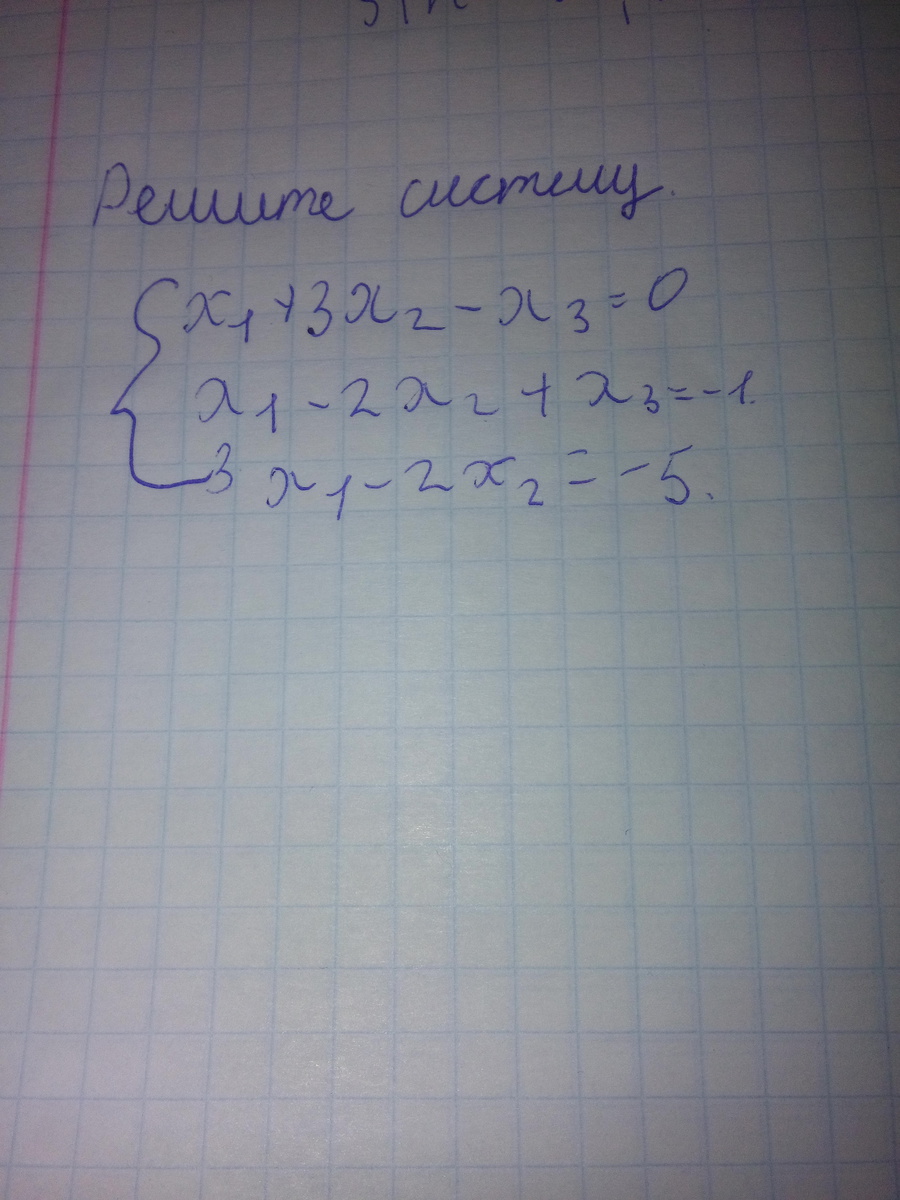 Решите систему.
x₁+3x₂-x₃=0
x₁-2x₂+x₃=-1.
3x₁-2x₂=-5.